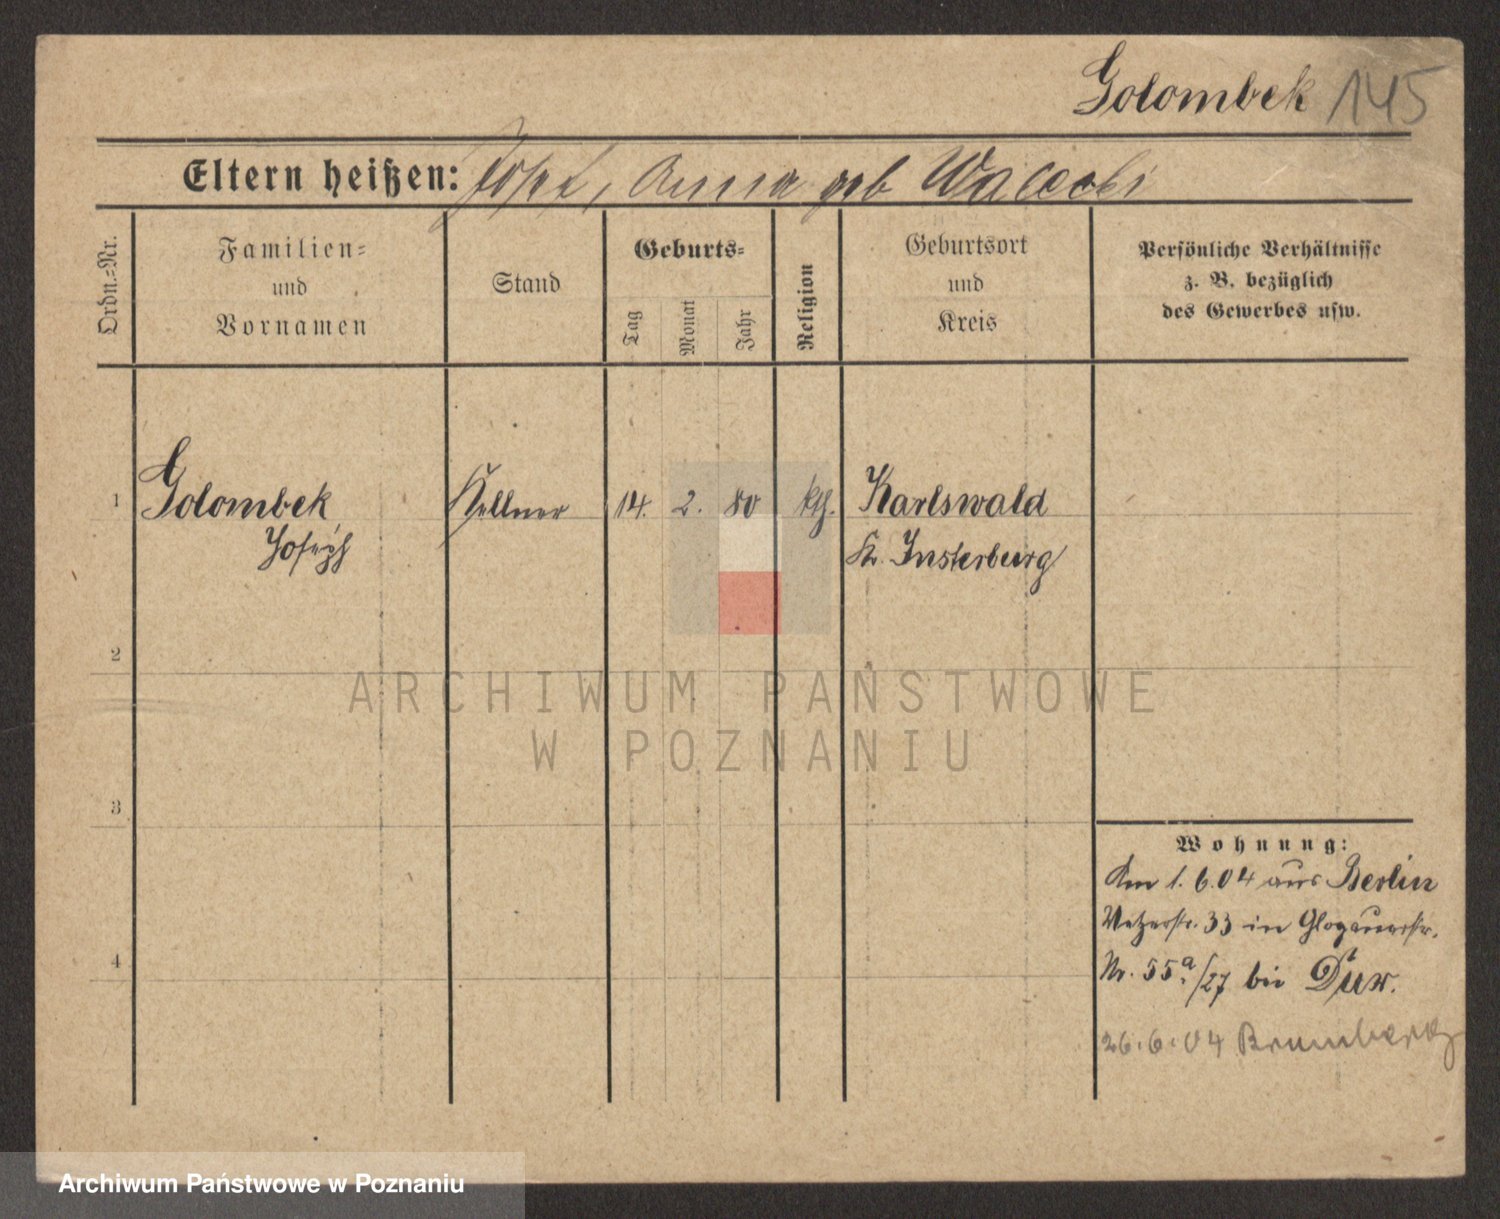 Golombek 145
Eltern heißen: Josef, Anna geb
Ordn.=Nr.
Familien=
und
Vornamen
Stand
Geburts=
Tag
Monat
Jahr
Religion
Geburtsort
und
Kreis
Persönliche Verhältnisse
z. B. bezüglich
des Gewerbes usw.
1 Golombek Kellner 14. 2. 80 kth. Karlswald
Joseph Kr. Insterburg
2
3
4
Wohnung:
Am 1.6.04 aus Berlin
33 in Glogauerstr.
Nr. 55a/27 bei
26.6.04 Bromberg
ARCHIWUM PAŃSTWOWE
W POZNANIU
Archiwum Państwowe w Poznaniu